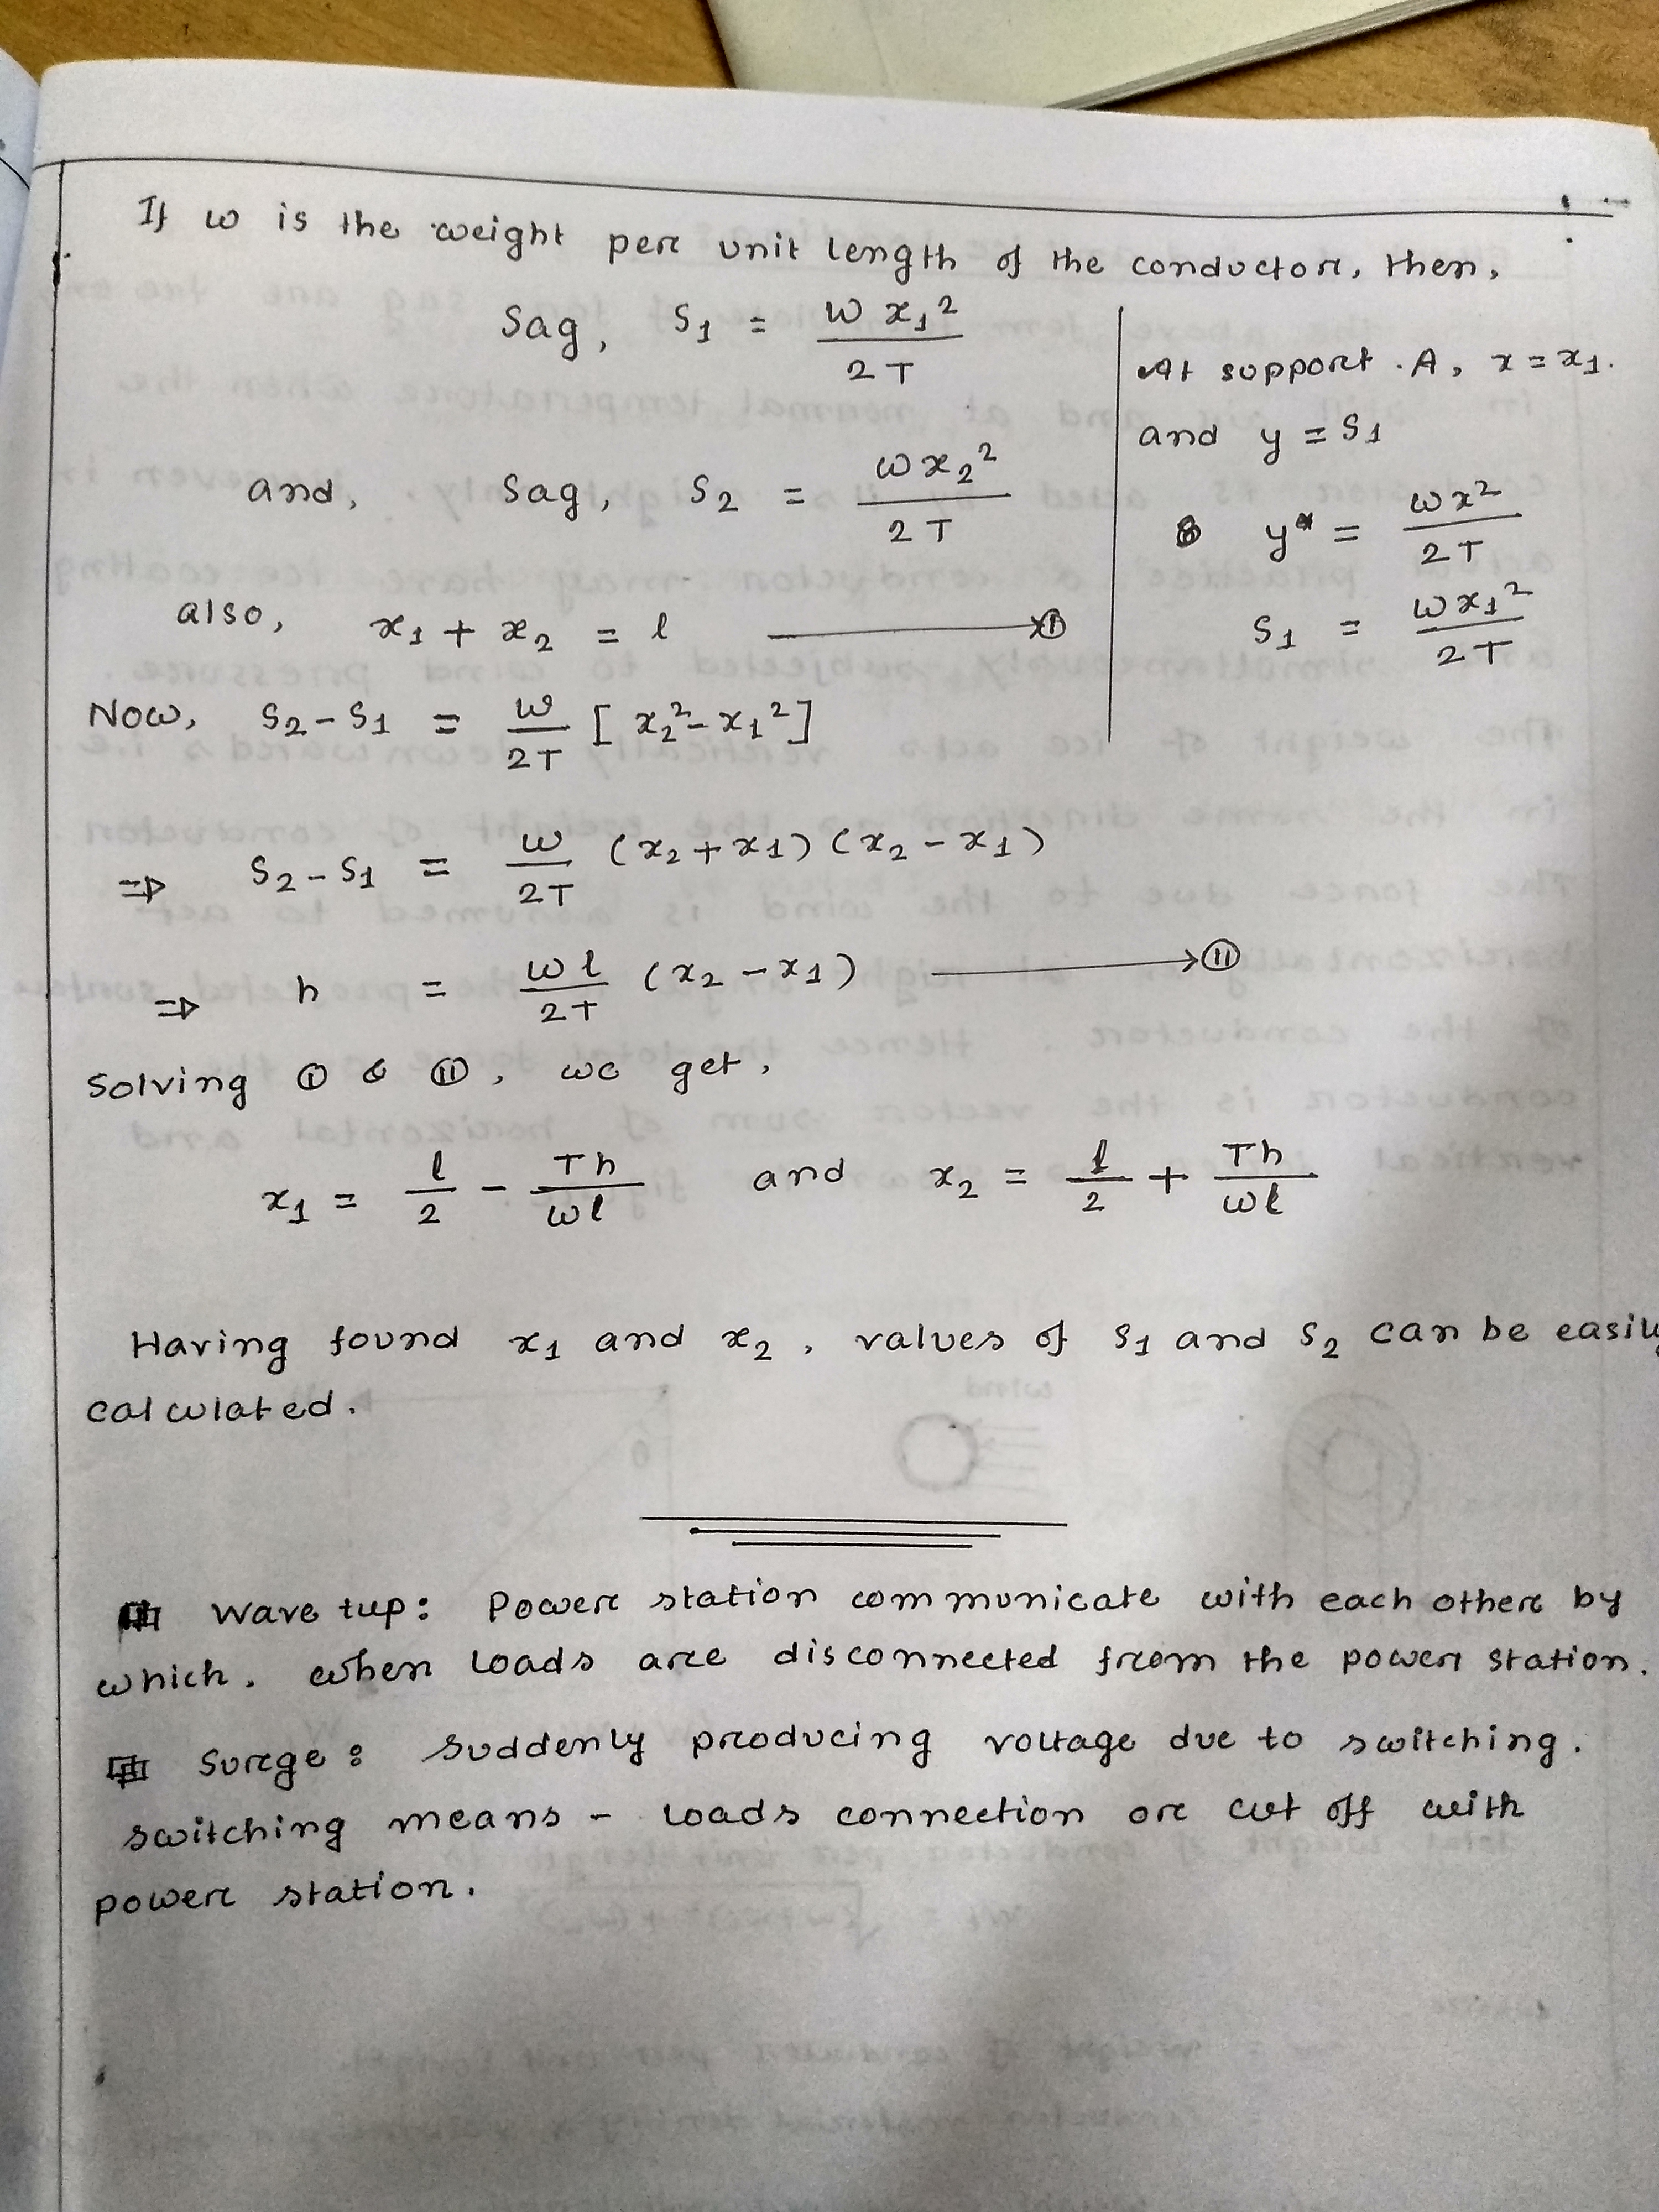 If w is the weight per unit length of the conductor, then,
Sag, S₁ = w x₁² / 2T
and, Sag, S₂ = w x₂² / 2T
also, x₁ + x₂ = l ⟶ (I)
At support A, x = x₁.
and y = S₁
y = w x² / 2T
S₁ = w x₁² / 2T
Now, S₂ - S₁ = w/2T [x₂² - x₁²]
⇒ S₂ - S₁ = w/2T (x₂ + x₁) (x₂ - x₁)
⇒ h = wl/2T (x₂ - x₁) ⟶ (II)
Solving (I) & (II), we get,
x₁ = l/2 - Th/wl and x₂ = l/2 + Th/wl
Having found x₁ and x₂, values of S₁ and S₂ can be easily
calculated.
Wave tup: Power station communicate with each other by
which. when loads are disconnected from the power station.
Surge: suddenly producing voltage due to switching.
switching means - loads connection or cut off with
power station.